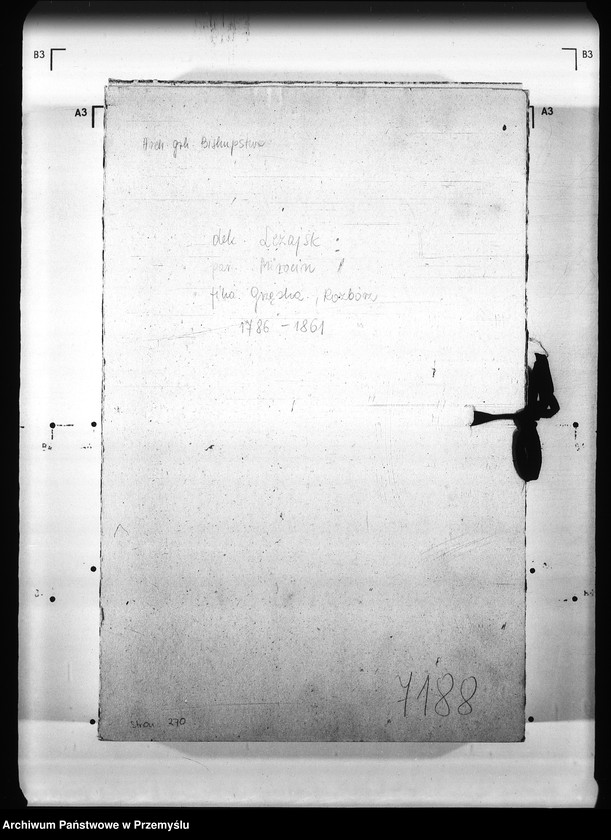 B3 B3
A3 A3
Arch. grk. Biskupstwa
dek. Leżajsk :
par. Mirocin
filia. Gnzęska, Rozbórz
1786 - 1861
7188
270
Archiwum Państwowe w Przemyślu